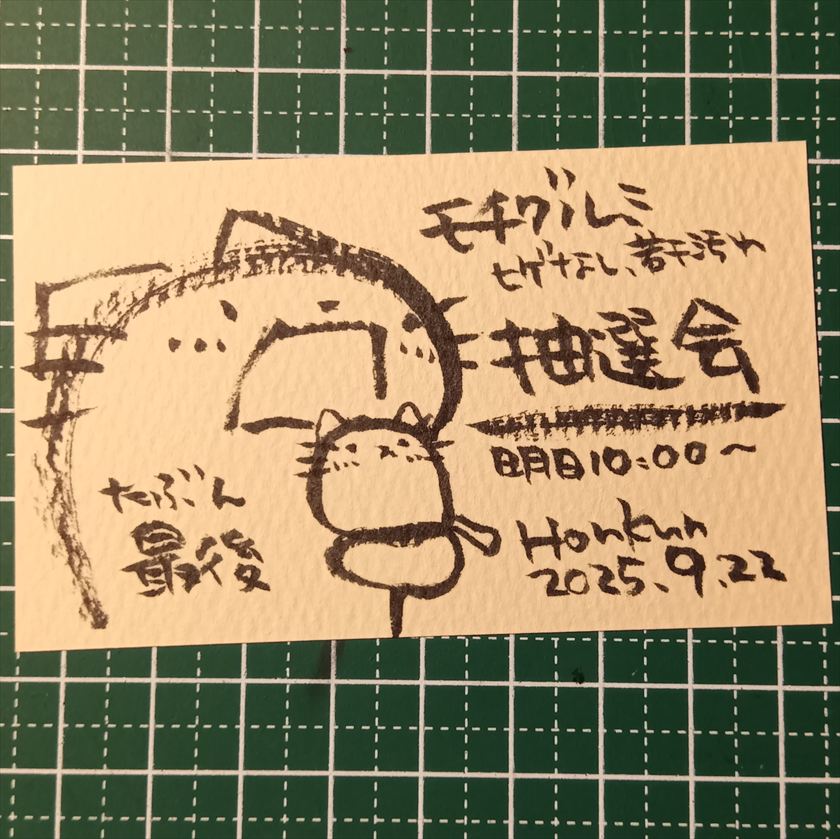 モチグルミ
ヒゲなし、若干汚れ
抽選会
明日10:00～
たぶん
最後
Honkun
2025.9.22